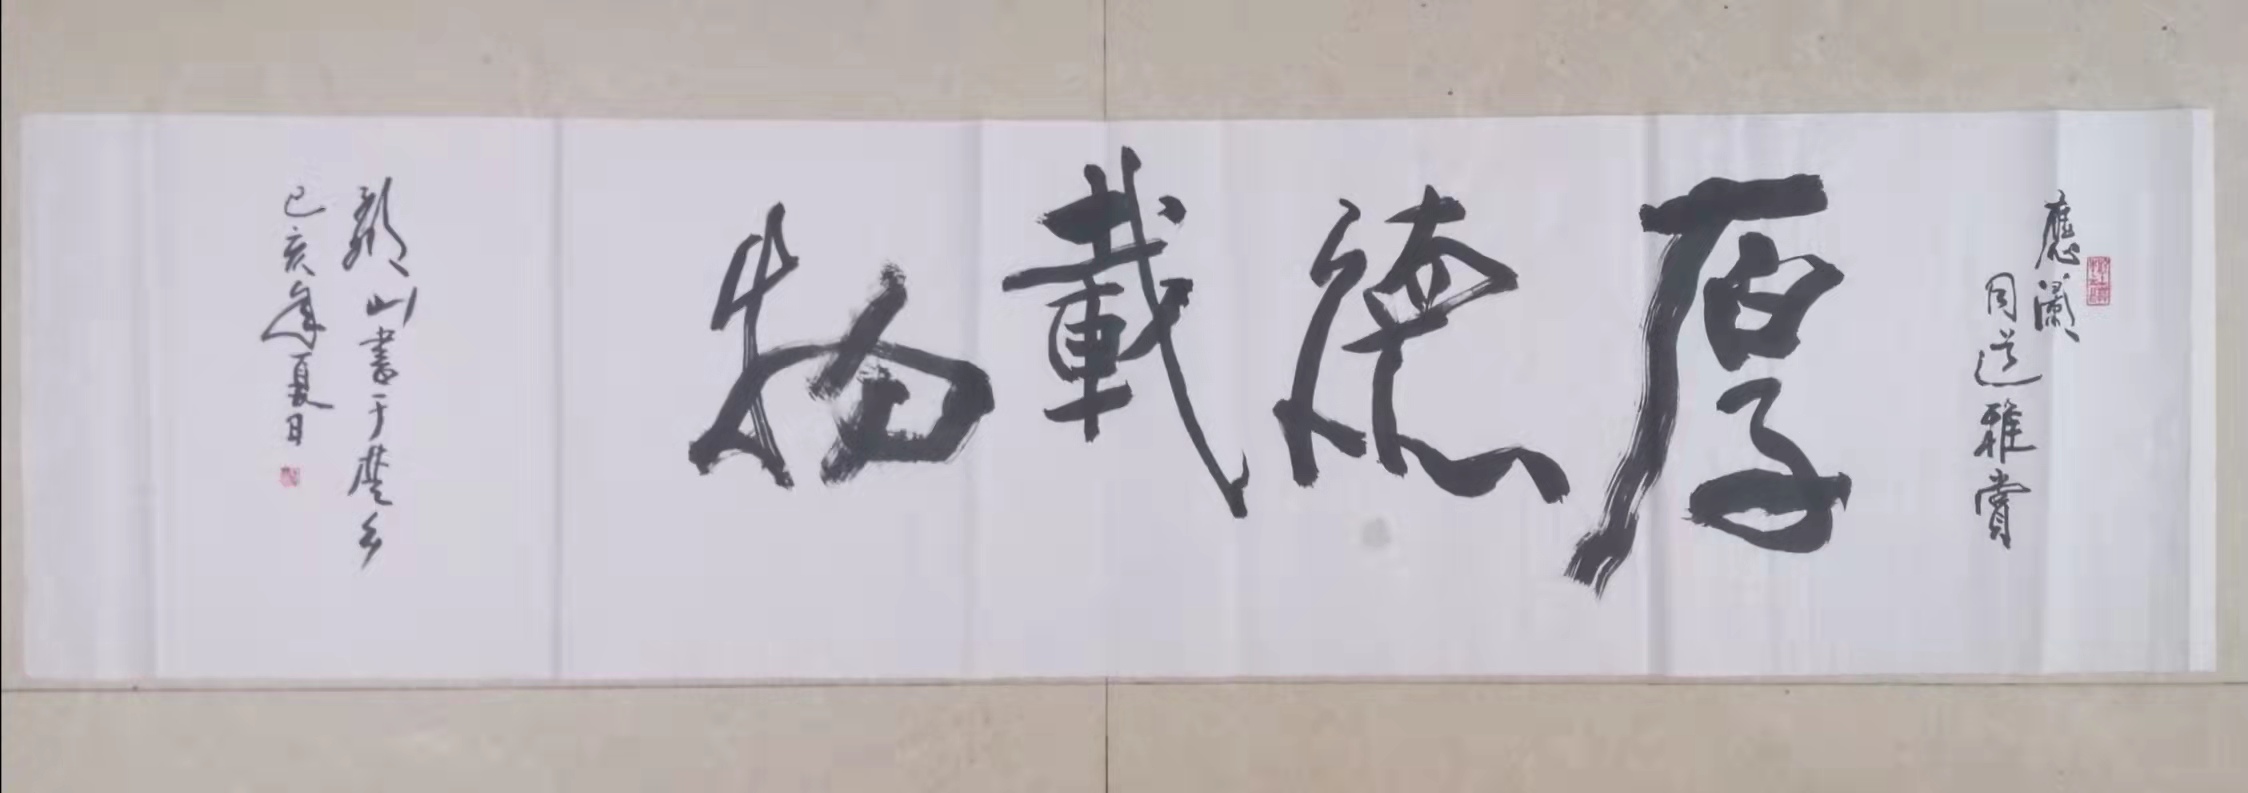 應瀾
同道雅賞
厚德載物
顯山書于楚乡
己亥年夏日